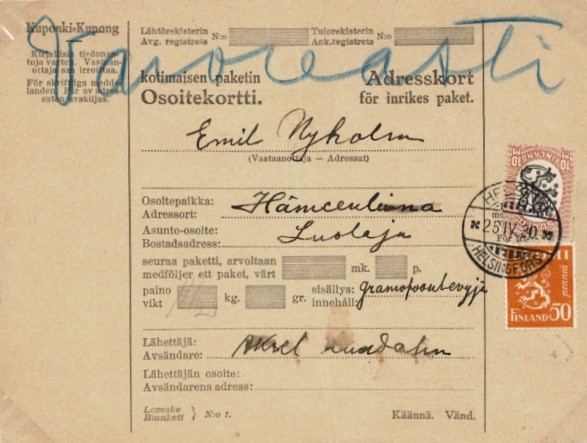 Kuponki-Kupong
Kirjallisia tiedonan-
toja varten. Vastaan-
ottaja saa irroittaa.
För skriftliga medde-
landen. Får av adres-
saten avskiljas.
Lähtörekisterin
Avg. registrets
N:o
Tulorekisterin
Ank. registrets
N:o
Varovasti
kotimaisen paketin
Osoitekortti.
Adresskort
för inrikes paket.
Emil Nyholm
(Vastaanottaja — Adressat)
Osoitepaikka:
Adressort:
Hämeenlinna
Asunto-osoite:
Bostadsadress:
Luolaja
seuraa paketti, arvoltaan
medföljer ett paket, värt
mk.
p.
paino
vikt
kg.
gr.
sisällys:
innehåll:
Lähettäjä:
Avsändare:
Lähettäjän osoite:
Avsändarens adress:
Lomake
Blankett
N:o 1.
Käännä. Vänd.
25.IV.30
HELSINGFORS
penniä
FINLAND 50